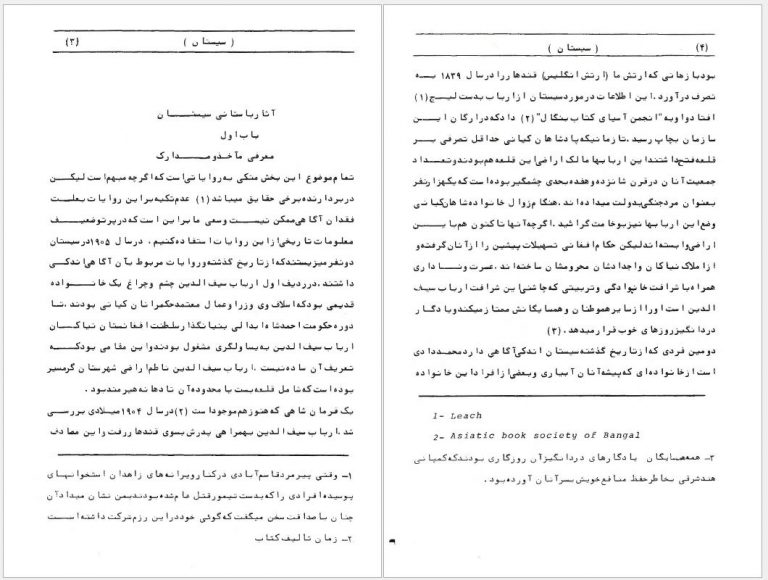 (٣) ( سیستان )
آثارباستانی سیستان
باب اول
معرفی مآخذومدارک
تمام موضوع این بخش متکی به روایاتی است که اگرچه مبهم است لیکن
دربردارنده برخی حقایق میباشد (۱) عدم تکیه براین روایات بعلت
فقدان آگاهی ممکن نیست وسعی ما براین است که درپرتوضعیف
معلومات تاریخی ازاین روایات استفاده کنیم . درسال ۱۹۰۵ درسیستان
دونفرمیزیستندکه ازتاریخ گذشته وروایات مربوط بآن آگاهی اندکی
داشتند .درردیف اول ارباب سیف الدین چشم وچراغ یک خانواده
قدیمی بودکه اسلاف وی وزراوعمال معتمدحکمرانان کیانی بودند .تا
دوره حکومت احمدشاه ابدالی بنیانگذارسلطنت افغانستان نیاکان
ارباب سیف الدین به یساولگری مشغول بودندواین مقامی بودکه
تعریف آن ساده نیست .ارباب سیف الدین ناظم اراضی شهرستان گرمسیر
بوده است که شامل قلعه بست با محدوده آن تا دهانه هیرمندبود .
یک فرمان شاهی که هنوزهم موجوداست (۲)درسال ۱۹۰۴میلادی بررسی
شد .ارباب سیف الدین بهمراهی پدرش بسوی قندهاررفت واین مصادف
۱ـ وقتی پیرمردقاسم آبادی درکنارویرانه های زاهدان استخوانهای
پوسیده افرادی راکه بدست تیمورقتل عام شده بودندبمن نشان میدادآن
چنان باصداقت سخن میگفت که گوئی خوددراین رزم شرکت داشته است
۲ـ زمان تالیف کتاب
( سیستان ) (۴)
بودبازمانی که ارتش ما (ارتش انگلیس) قندهاررادرسال ۱۸۳۹ به
تصرف درآورد .این اطلاعات درموردسیستان ازارباب بدست لیچ(۱)
افتادواوبه "انجمن آسیای کتاب بنگال" (۲) دادکه درارگان این
سازمان بچاپ رسید .تازمانیکه پادشاهان کیانی حداقل تصرفی بر
قلعه فتح داشتنداین اربابها مالک اراضی این قلعه هم بودندوتعداد
جمعیت آنان درقرن شانزده وهفده بحدی چشمگیربوده است که یکهزارنفر
بعنوان مردجنگی بدولت میداده اند .هنگام زوال خانواده شاهان کیانی
وضع این اربابهانیزبوخامت گرائید .اگرچه آنهاتاکنون هم باین
اراضی وابسته اندلیکن حکام افغانی تسهیلات پیشین راازآنان گرفته و
ازاملاک نیاکان واجدادشان محرومشان ساخته اند .عسرت ونداداری
همراه باشرافت خانوادگی وتربیتی که چاشنی این شرافت ارباب سیف
الدین است اوراازسایرهموطنان وهمسایگانش ممتازمیکندویادگار
دردانگیزروزهای خوب قرارمیدهد . (۳)
دومین فردی که ازتاریخ گذشته سیستان اندکی آگاهی داردمحمددادی
است ازخانواده ای که پیشه آنان آبیاری وبعضی ازافراداین خانواده
1- Leach
2- Asiatic book society of Bangal
۳ـ همه همسایگان یادگارهای دردانگیزآن روزگاری بودندکه کمپانی
هندشرقی بخاطرحفظ منافع خویش بسرآنان آورده بود .